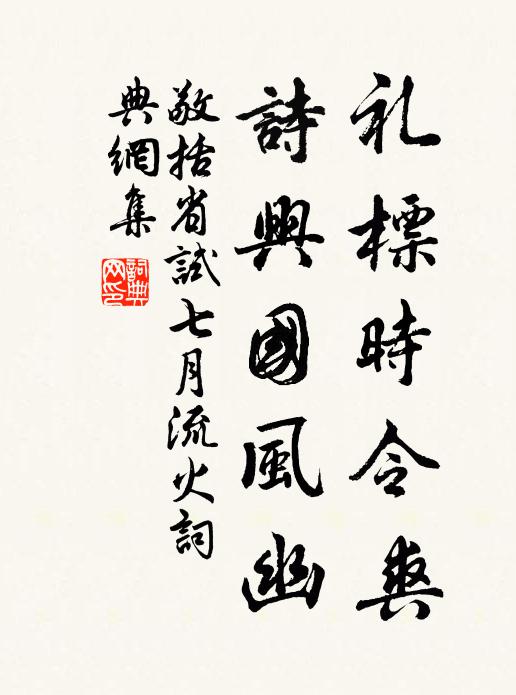 礼標時令爽
詩興國風幽
敬括省試七月流火詞
典網集
詞典
网印